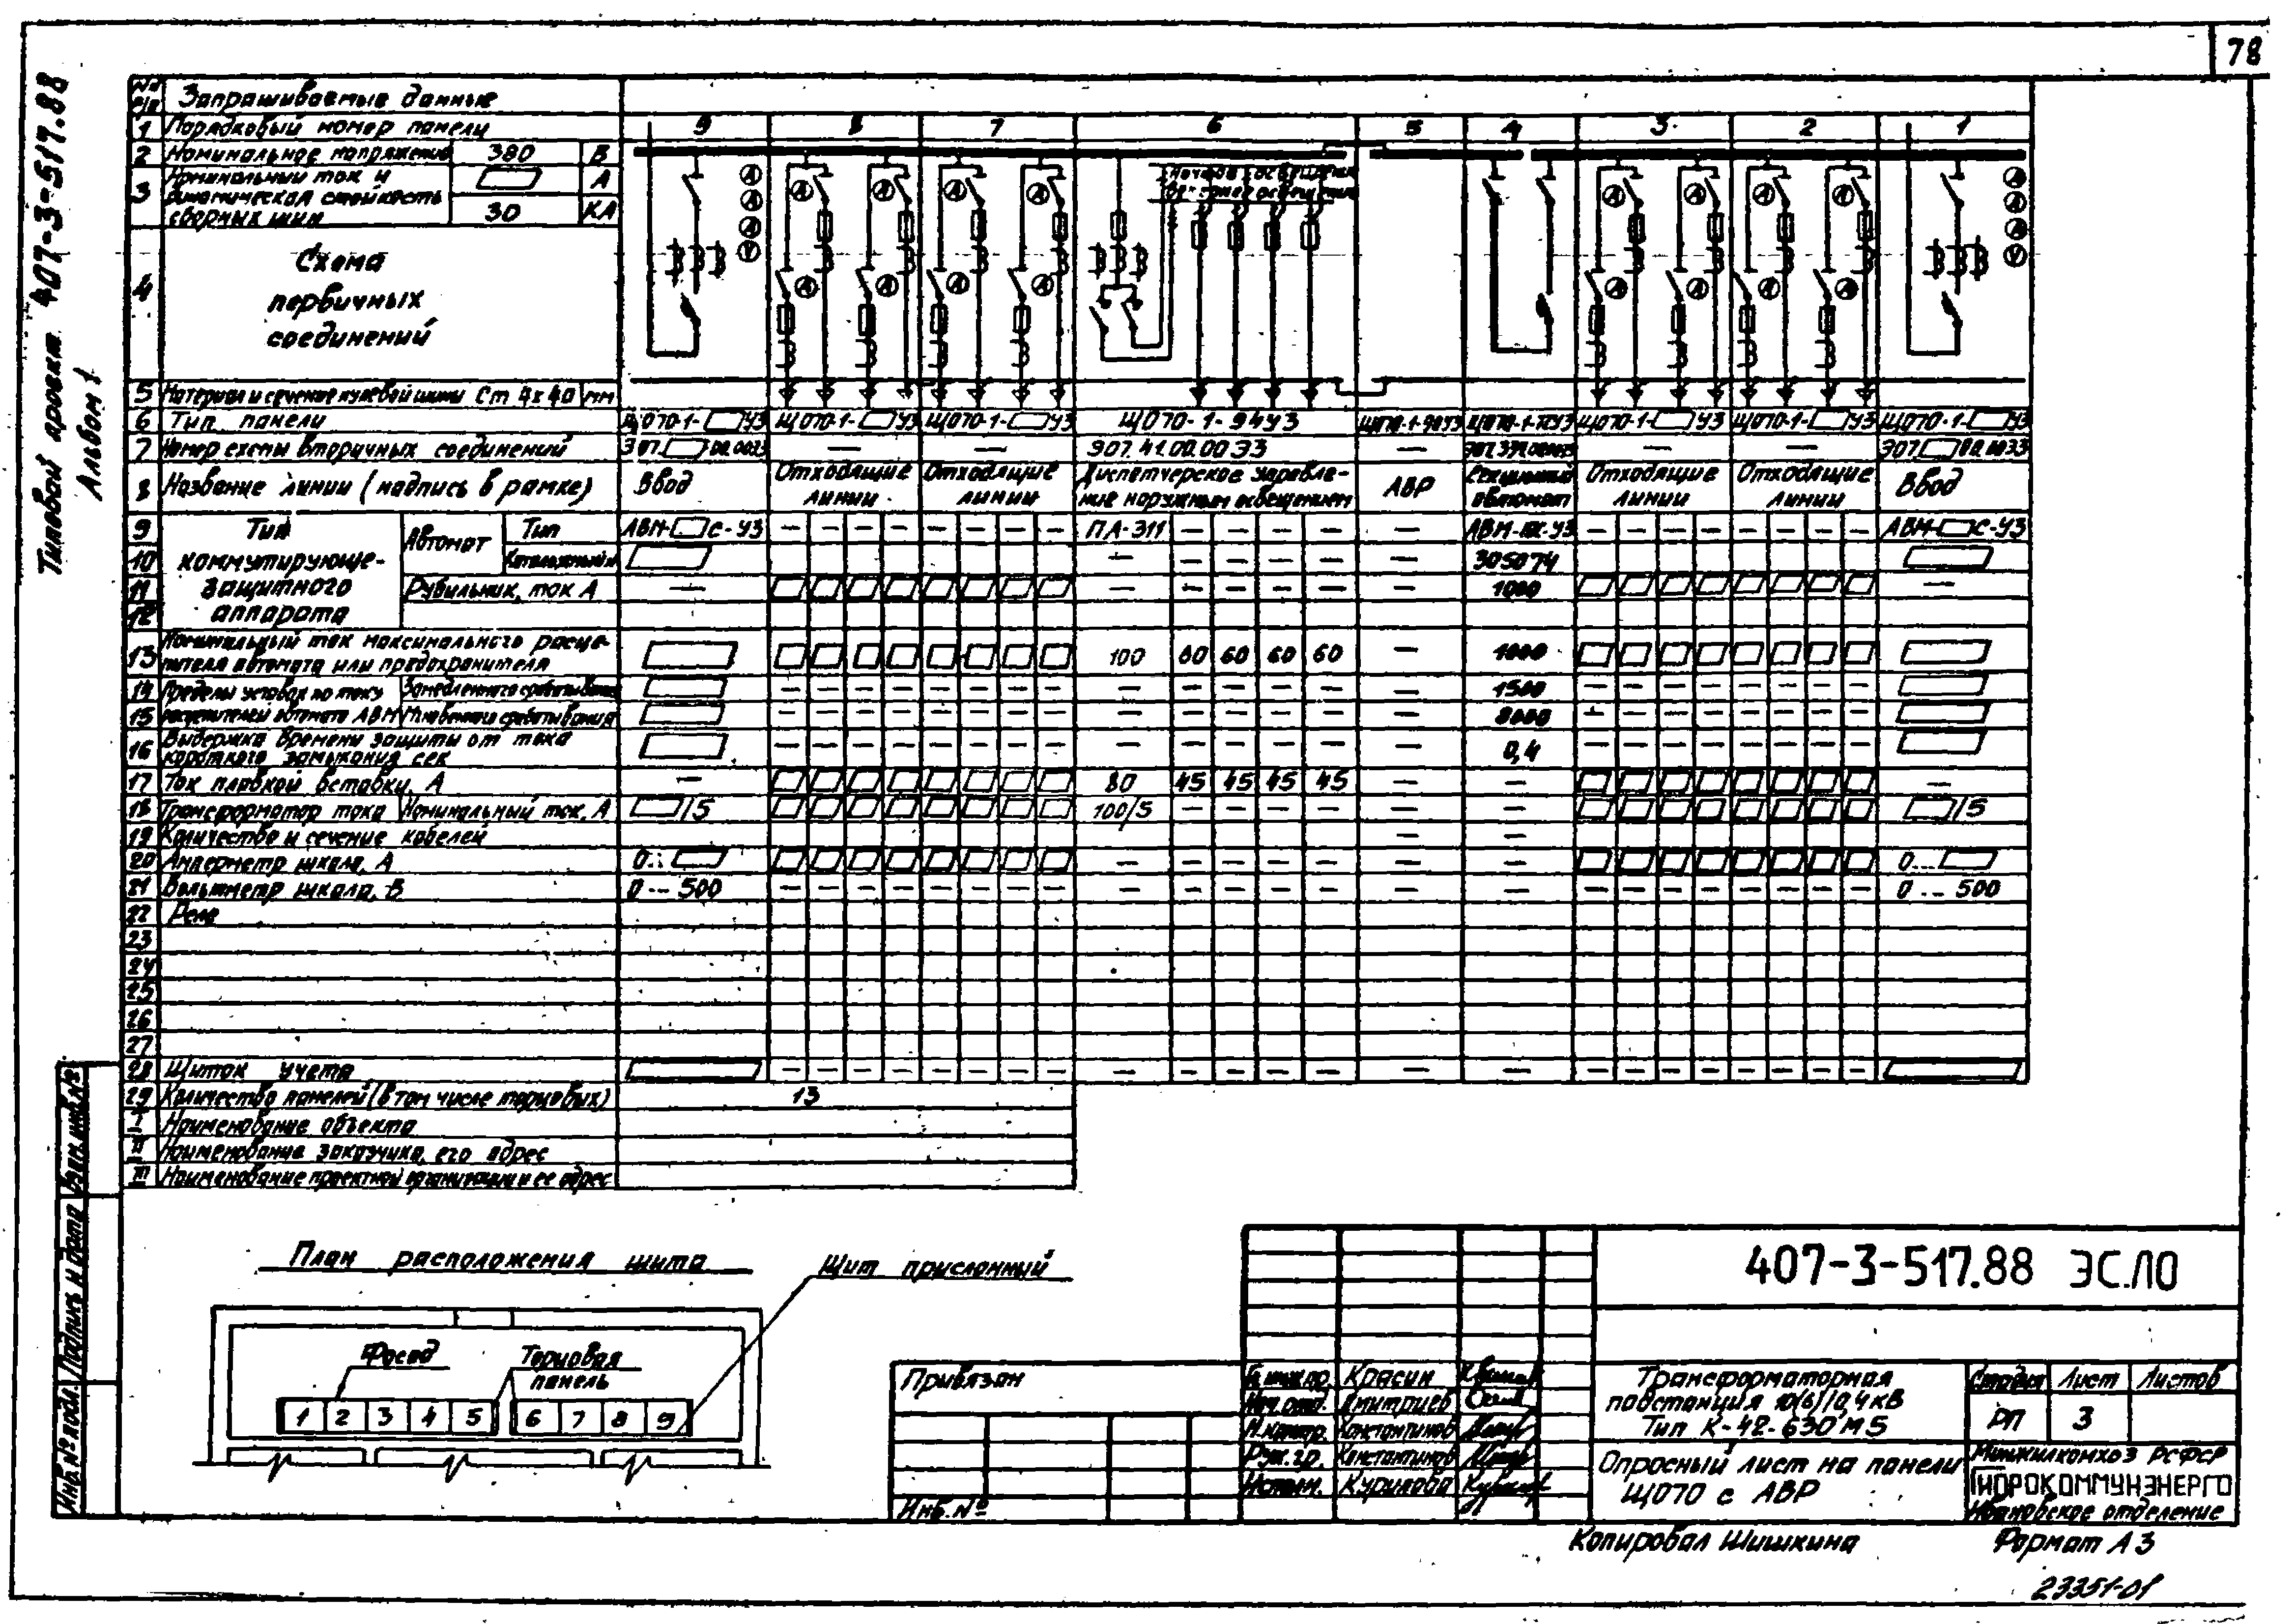 78
Типовой проект 407-3-517.88
Альбом 1
№№ п/п Запрашиваемые данные
1 Порядковый номер панели 9 8 7 6 5 4 3 2 1
2 Номинальное напряжение 380 В
3 Номинальный ток и динамическая стойкость сборных шин А
30 КА
4 Схема первичных соединений
5 Материал и сечение нулевой шины Ст 4х40 мм
6 Тип панели ЩО70-1- У3 ЩО70-1- У3 ЩО70-1- У3 ЩО70-1-94У3 ЩО70-1-90У3 ЩО70-1- У3 ЩО70-1- У3 ЩО70-1- У3
7 Номер схемы вторичных соединений Э07. — — Э07.41.00.00Э3 — — — Э07.
8 Название линии (надпись в рамке) Ввод Отходящие линии Отходящие линии Диспетчерское управление наружным освещением АВР Секционный автомат Отходящие линии Отходящие линии Ввод
9 Тип коммутирующе-защитного аппарата Автомат Тип АВМ- С-У3 — — — — — — — — ПА-311 — — — — — — — — — — — — — АВМ- С-У3
10 Каталожный № — — — — — — 305074
11 Рубильник, ток А — — — — — — — 1000 —
12
13 Номинальный ток максимального расцепителя автомата или предохранителя 100 60 60 60 60 — 1000
14 Пределы уставок по току расцепителей автомата АВМ Замедленного срабатывания — — — — — — — — — — — — — — 1500 — — — — — — — —
15 Мгновенного срабатывания — — — — — — — — — — — — — — 8000 — — — — — — — —
16 Выдержка времени защиты от тока короткого замыкания сек — — — — — — — — — — — — — — 0,4 — — — — — — — —
17 Ток плавкой вставки, А — 80 45 45 45 45 — — —
18 Трансформатор тока Номинальный ток, А /5 100/5 — — — — — — /5
19 Количество и сечение кабелей — —
20 Амперметр шкала, А 0... — — — — — — — 0...
21 Вольтметр шкала, В 0...500 — — — — — — — — — — — — — — — — — — — — — — — 0...500
22 Реле
23
24
25
26
27
28 Щиток учета — — — — — — — — — — — — — — — — — — — — — — —
29 Количество панелей (в том числе торцовых) 13
I Наименование объекта
II Наименование заказчика, его адрес
III Наименование проектной организации и ее адрес
План расположения щита
Щит прислонный
Фасад
Торцовая панель
1 2 3 4 5 6 7 8 9
Инв.№ подл. Подпись и дата Взам.инв.№
Привязан
Инв.№
407-3-517.88 ЭС.ЛО
Гл.инж.пр. Красин
Нач.отд. Дмитриев
Н.контр. Константинов
Рук.гр. Константинов
Исполн. Курилова
Трансформаторная
подстанция 10(6)/0,4кВ
Тип К-42-630 М5
Стадия Лист Листов
РП 3
Опросный лист на панели
ЩО70 с АВР
Минжилкомхоз РСФСР
ГИПРОКОММУНЭНЕРГО
Ивановское отделение
Копировал Шишкина
Формат А3
23351-01